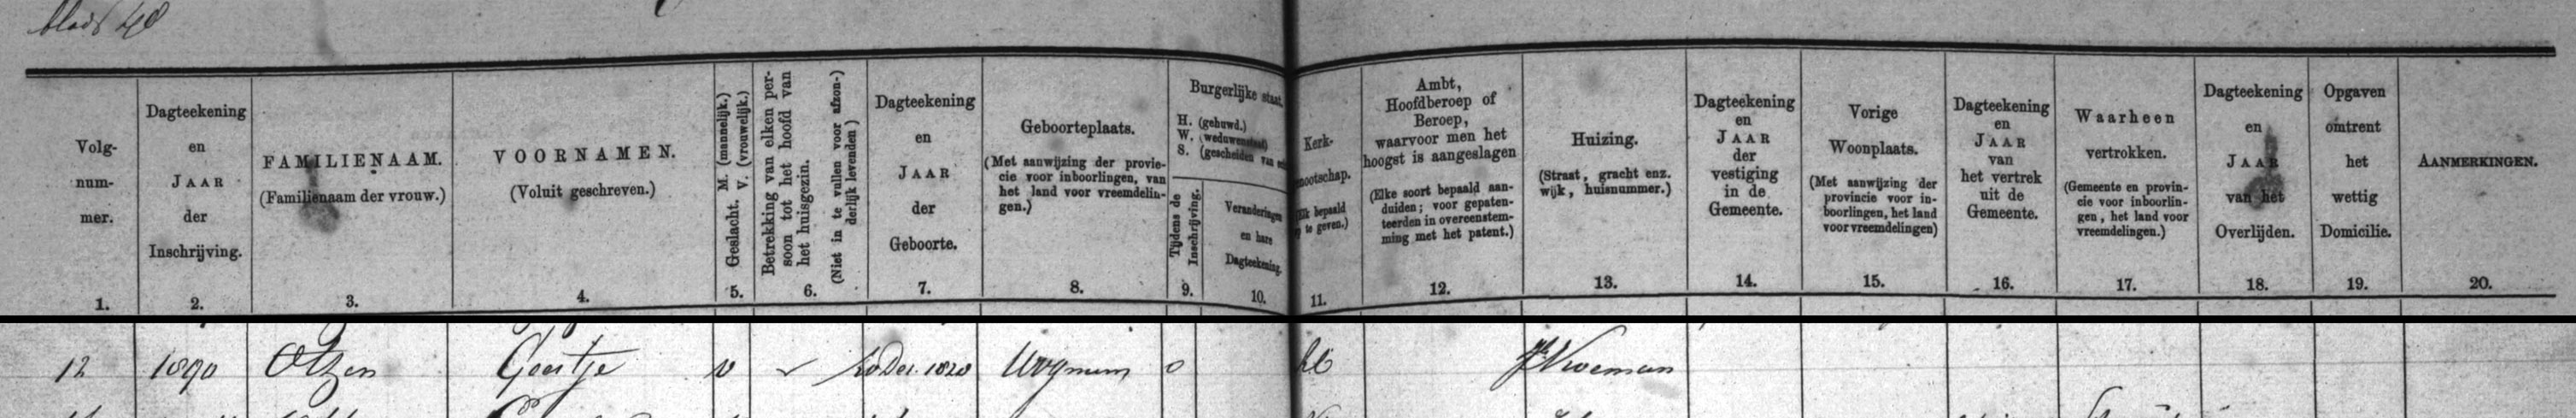 blad 40
Volg-
num-
mer.
1.
Dagteekening
en
JAAR
der
Inschrijving.
2.
FAMILIENAAM.
(Familienaam der vrouw.)
3.
VOORNAMEN.
(Voluit geschreven.)
4.
Geslacht. M. (mannelijk.)
V. (vrouwelijk.)
5.
Betrekking van elken per-
soon tot het hoofd van
het huisgezin.
(Niet in te vullen voor afzon-)
derlijk levenden )
6.
Dagteekening
en
JAAR
der
Geboorte.
7.
Geboorteplaats.
(Met aanwijzing der provie-
cie voor inboorlingen, van
het land voor vreemdelin-
gen.)
8.
Burgerlijke staat.
H. (gehuwd.)
W. (weduwenstaat)
S. (gescheiden van
Tijdens de
Inschrijving.
9.
Veranderingen
en hare
Dagteekening.
10.
Kerk-
nootschap.
bepaald
te geven.)
11.
Ambt,
Hoofdberoep of
Beroep,
waarvoor men het
hoogst is aangeslagen
(Elke soort bepaald aan-
duiden; voor gepaten-
teerden in overeenstem-
ming met het patent.)
12.
Huizing.
(Straat, gracht enz.
wijk, huisnummer.)
13.
Dagteekening
en
JAAR
der
vestiging
in de
Gemeente.
14.
Vorige
Woonplaats.
(Met aanwijzing der
provincie voor in-
boorlingen, het land
voor vreemdelingen)
15.
Dagteekening
en
JAAR
van
het vertrek
uit de
Gemeente.
16.
Waarheen
vertrokken.
(Gemeente en provin-
cie voor inboorlin-
gen, het land voor
vreemdelingen.)
17.
Dagteekening
en
JAAR
van het
Overlijden.
18.
Opgaven
omtrent
het
wettig
Domicilie.
19.
AANMERKINGEN.
20.
12 1890 Otzen Geertje v Dec. 1820 Wognum o Vroeman